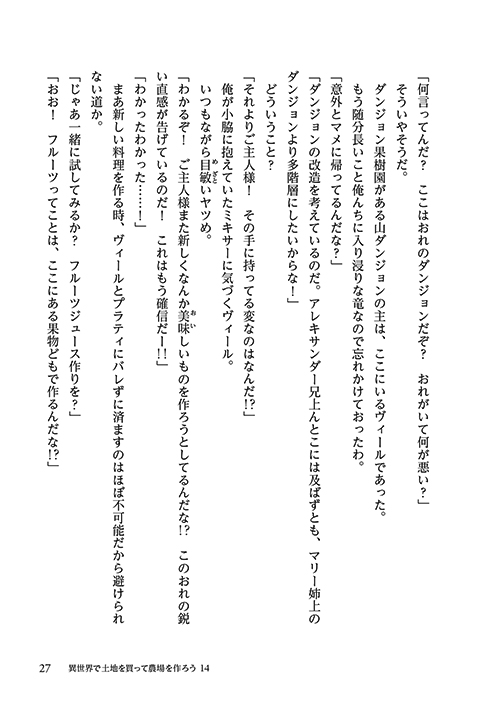 「何言ってんだ？　ここはおれのダンジョンだぞ？　おれがいて何が悪い？」
そういやそうだ。
ダンジョン果樹園がある山ダンジョンの主は、ここにいるヴィールであった。
もう随分長いこと俺んちに入り浸りな竜なので忘れかけておったわ。
「意外とマメに帰ってるんだな？」
「ダンジョンの改造を考えているのだ。アレキサンダー兄上んとこには及ばずとも、マリー姉上の
ダンジョンより多階層にしたいからな！」
どういうこと？
「それよりご主人様！　その手に持ってる変なのはなんだ!?」
俺が小脇に抱えていたミキサーに気づくヴィール。
いつもながら目敏いヤツめ。
「わかるぞ！　ご主人様また新しくなんか美味しいものを作ろうとしてるんだな!?　このおれの鋭
い直感が告げているのだ！　これはもう確信だー!!」
「わかったわかった……！」
まあ新しい料理を作る時、ヴィールとプラティにバレずに済ますのはほぼ不可能だから避けられ
ない道か。
「じゃあ一緒に試してみるか？　フルーツジュース作りを？」
「おお！　フルーツってことは、ここにある果物どもで作るんだな!?」
27　異世界で土地を買って農場を作ろう 14